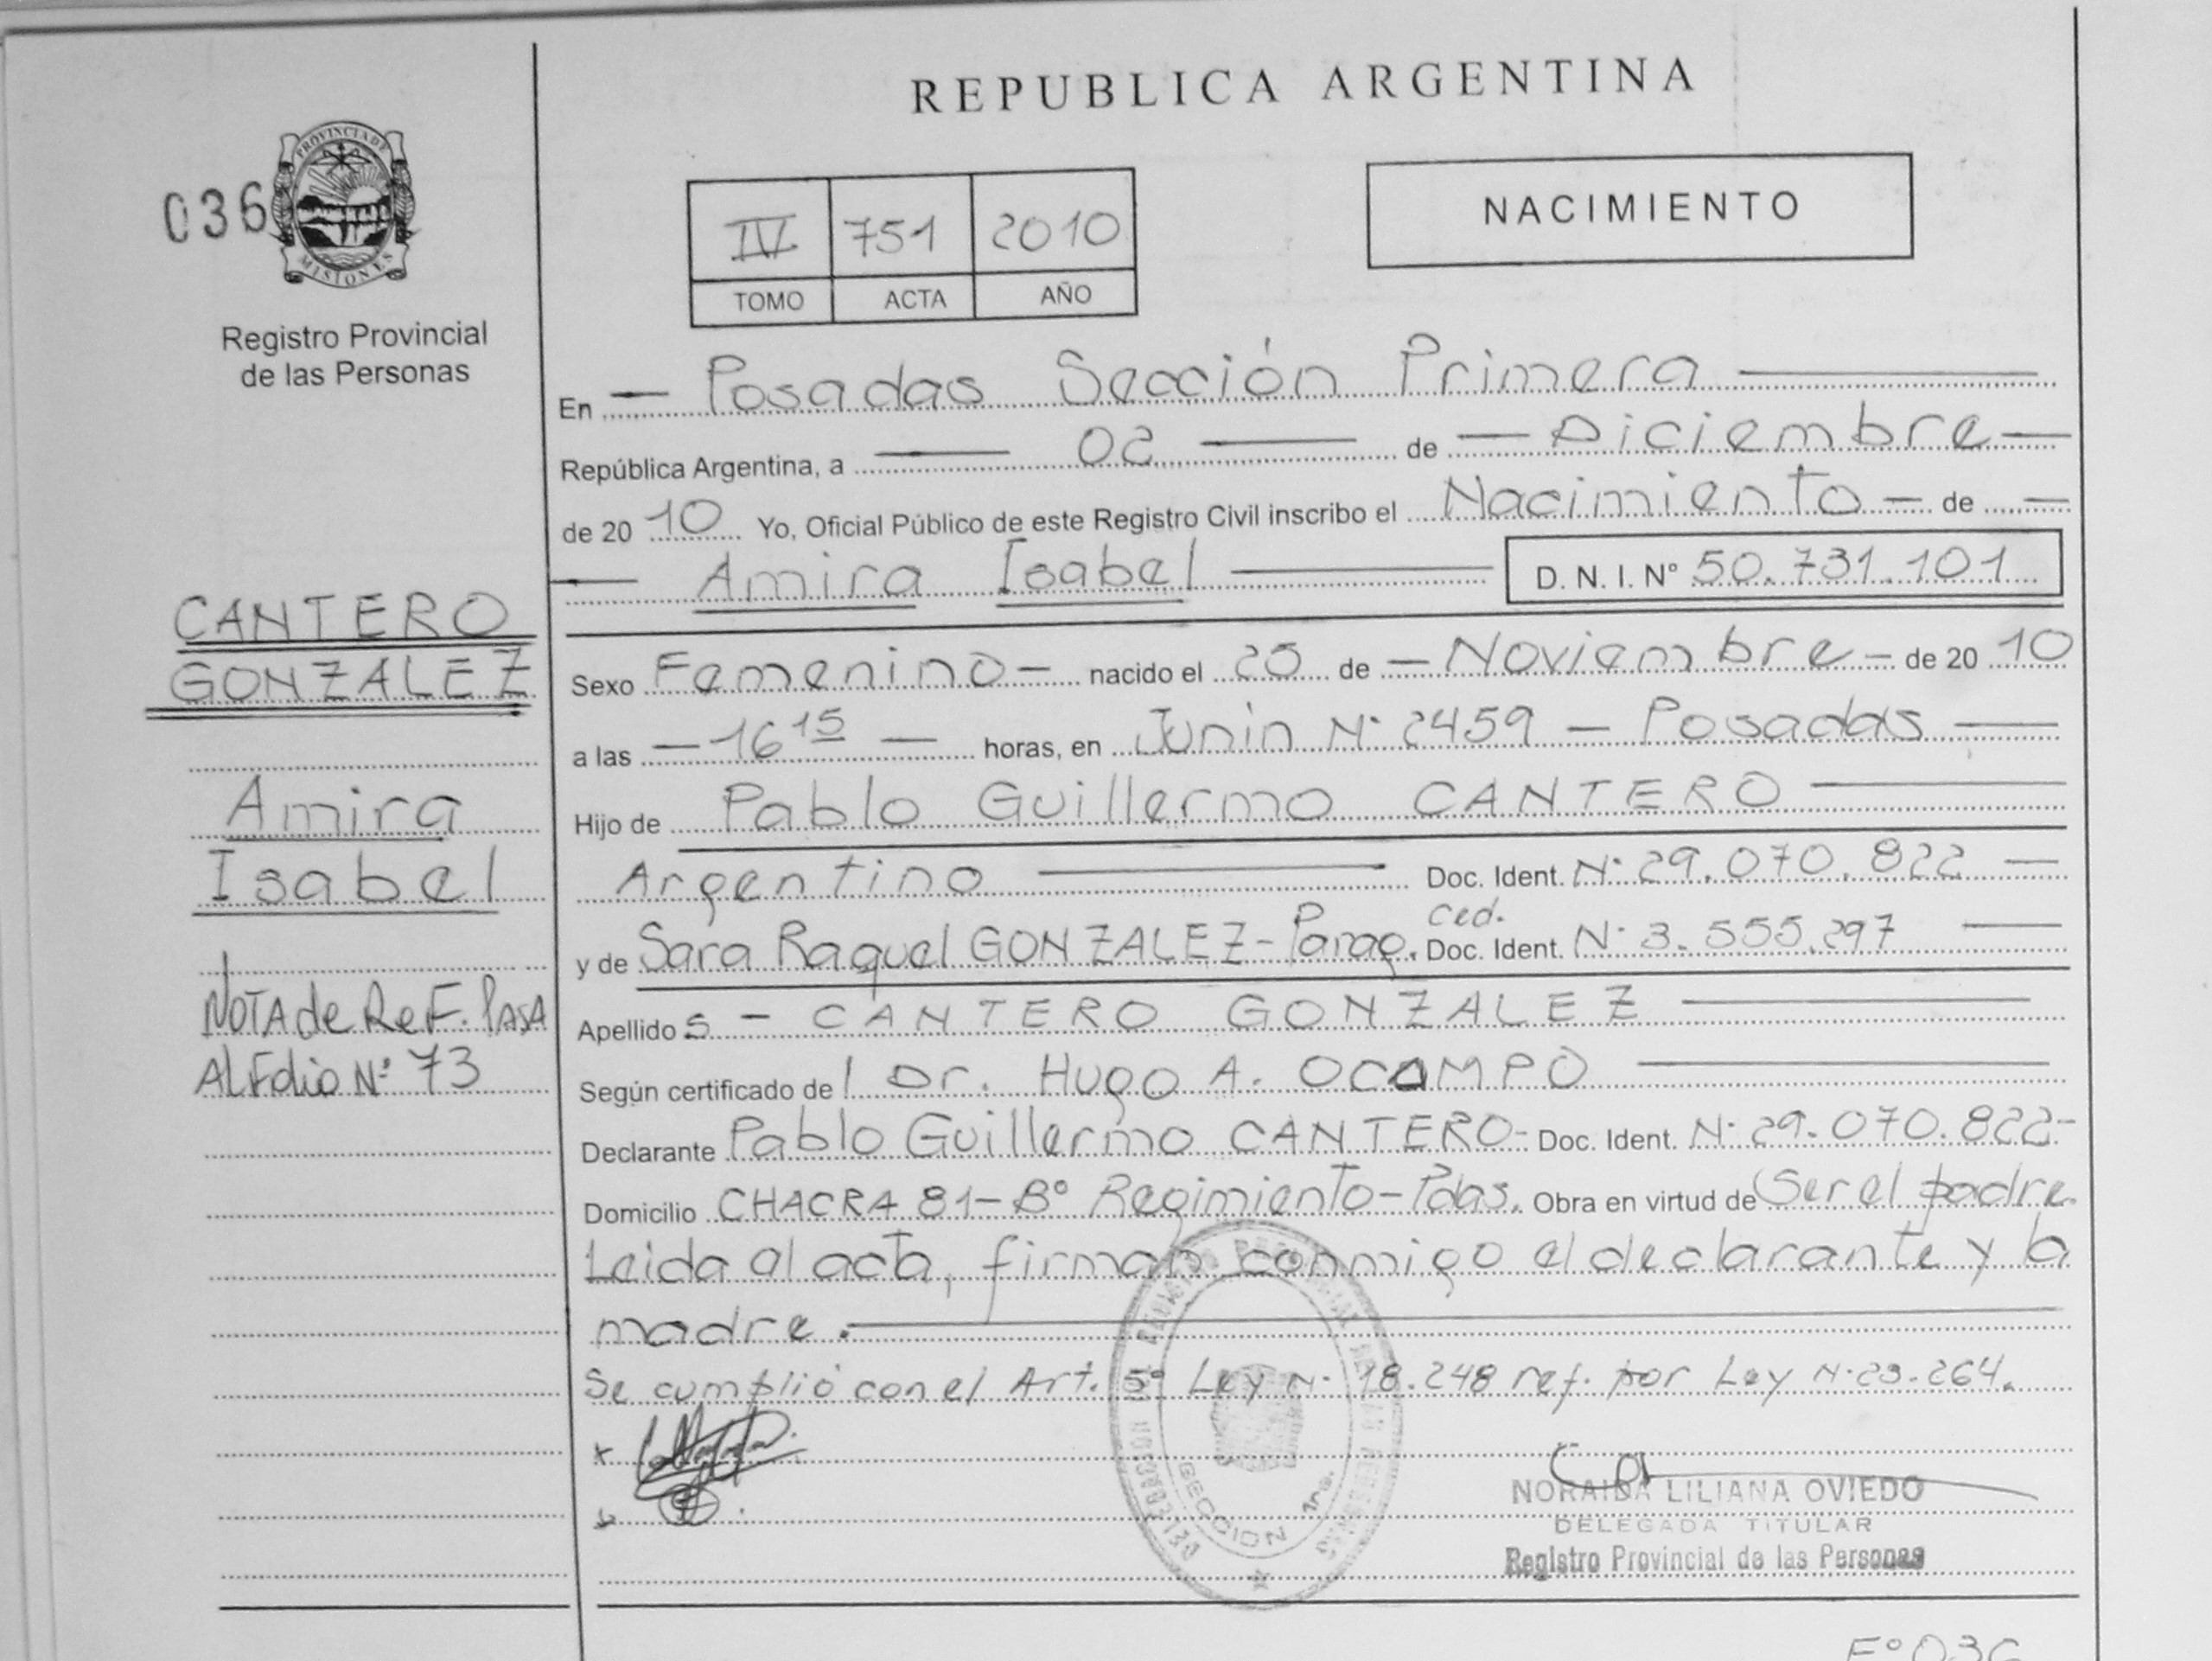 REPUBLICA ARGENTINA
036
PROVINCIA DE
MISIONES
Registro Provincial
de las Personas
NACIMIENTO
IV 751 2010
TOMO ACTA AÑO
En Posadas Sección Primera
República Argentina, a 02 de Diciembre
de 2010 Yo, Oficial Público de este Registro Civil inscribo el Nacimiento de
Amira Isabel D. N. I. Nº 50.731.101
CANTERO
GONZALEZ
Amira
Isabel
NOTA de ReF. PASA
AL Folio Nº 73
Sexo Femenino nacido el 25 de Noviembre de 2010
a las 16 15 horas, en Junin Nº 2459 - Posadas
Hijo de Pablo Guillermo CANTERO
Argentino Doc. Ident. Nº 29.070.822
Ced.
y de Sara Raquel GONZALEZ - Parag. Doc. Ident. Nº 3.555.297
Apellido s - CANTERO GONZALEZ
Según certificado de l Dr. Hugo A. OCAMPO
Declarante Pablo Guillermo CANTERO - Doc. Ident. Nº 29.070.822-
Domicilio CHACRA 81 - Bº Regimiento - Pdas. Obra en virtud de Ser el padre.
Leida al acta, firman conmigo el declarante y la
madre.
Se cumplió con el Art. 5º Ley Nº 18.248 ref. por Ley Nº 23.264.
SECCION 1ra.
NORAIDA LILIANA OVIEDO
DELEGADA TITULAR
Registro Provincial de las Personas
Fº 036